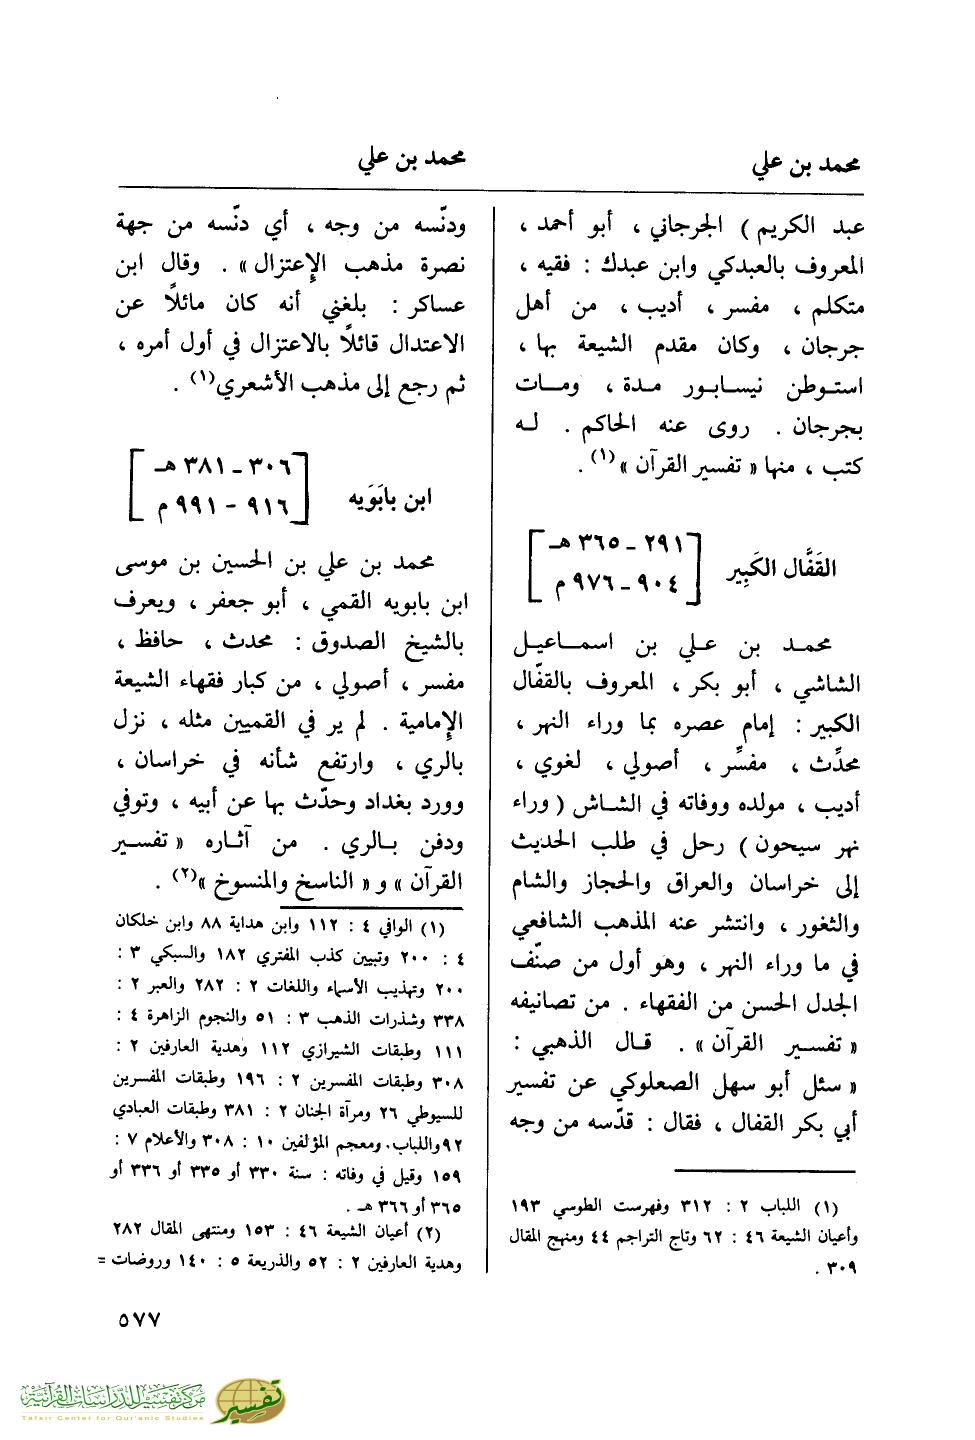 محمد بن علي
محمد بن علي
عبد الكريم ) الجرجاني ، أبو أحمد ،
المعروف بالعبدكي وابن عبدك : فقيه ،
متكلم ، مفسر ، أديب ، من أهل
جرجان ، وكان مقدم الشيعة بها ،
استوطن نيسابور مدة ، ومات
بجرجان . روى عنه الحاكم . له
كتب ، منها « تفسير القرآن »(١) .
القَفَّال الكَبِير
٢٩١ - ٣٦٥ هـ
٩٠٤ - ٩٧٦ م
محمد بن علي بن اسماعيل
الشاشي ، أبو بكر ، المعروف بالقفّال
الكبير : إمام عصره بما وراء النهر ،
محدِّث ، مفسِّر ، أصولي ، لغوي ،
أديب ، مولده ووفاته في الشاش ( وراء
نهر سيحون ) رحل في طلب الحديث
إلى خراسان والعراق والحجاز والشام
والثغور ، وانتشر عنه المذهب الشافعي
في ما وراء النهر ، وهو أول من صنّف
الجدل الحسن من الفقهاء . من تصانيفه
« تفسير القرآن » . قال الذهبي :
« سئل أبو سهل الصعلوكي عن تفسير
أبي بكر القفال ، فقال : قدّسه من وجه
(١) اللباب ٢ : ٣١٢ وفهرست الطوسي ١٩٣
وأعيان الشيعة ٤٦ : ٦٢ وتاج التراجم ٤٤ ومنهج المقال
٣٠٩ .
ودنّسه من وجه ، أي دنّسه من جهة
نصرة مذهب الإعتزال » . وقال ابن
عساكر : بلغني أنه كان مائلاً عن
الاعتدال قائلاً بالاعتزال في أول أمره ،
ثم رجع إلى مذهب الأشعري(١) .
ابن بابَوَيه
٣٠٦ - ٣٨١ هـ
٩١٦ - ٩٩١ م
محمد بن علي بن الحسين بن موسى
ابن بابويه القمي ، أبو جعفر ، ويعرف
بالشيخ الصدوق : محدث ، حافظ ،
مفسر ، أصولي ، من كبار فقهاء الشيعة
الإمامية . لم ير في القميين مثله ، نزل
بالري ، وارتفع شأنه في خراسان ،
وورد بغداد وحدّث بها عن أبيه ، وتوفي
ودفن بالري . من آثاره « تفسير
القرآن » و « الناسخ والمنسوخ »(٢) .
(١) الوافي ٤ : ١١٢ وابن هداية ٨٨ وابن خلكان
٤ : ٢٠٠ وتبيين كذب المفتري ١٨٢ والسبكي ٣ :
٢٠٠ وتهذيب الأسماء واللغات ٢ : ٢٨٢ والعبر ٢ :
٣٣٨ وشذرات الذهب ٣ : ٥١ والنجوم الزاهرة ٤ :
١١١ وطبقات الشيرازي ١١٢ وهدية العارفين ٢ :
٣٠٨ وطبقات المفسرين ٢ : ١٩٦ وطبقات المفسرين
للسيوطي ٢٦ ومرآة الجنان ٢ : ٣٨١ وطبقات العبادي
٩٢ واللباب. ومعجم المؤلفين ١٠ : ٣٠٨ والأعلام ٧ :
١٥٩ وقيل في وفاته : سنة ٣٣٠ أو ٣٣٥ أو ٣٣٦ أو
٣٦٥ أو ٣٦٦ هـ .
(٢) أعيان الشيعة ٤٦ : ١٥٣ ومنتهى المقال ٢٨٢
وهدية العارفين ٢ : ٥٢ والذريعة ٥ : ١٤٠ وروضات =
٥٧٧
مركز تفسير للدراسات القرآنية
Tafsir Center for Qur'anic Studies
تفسير